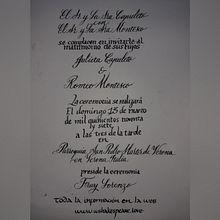 El Sr. y La Sra Capuleto
con
El Sr. y La Sra Montesco
se complacen en invitarle al
matrimonio de sus hijos
Julieta Capuleto
&
Romeo Montesco
La ceremonia se realizará
El domingo 15 de marzo
de mil quinientos noventa
y siete
a las tres de la tarde
en
Parroquia San Pedro Mártir de Verona
en Verona Italia
preside la ceremonia
Fray Lorenzo
Toda la informacion en la web